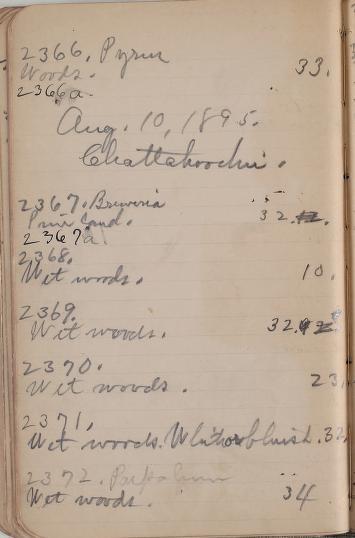 2366. Pyrus
Woods. 33.
2366a.
Aug. 10, 1895.
Chattahoochie.
2367. Breweria
Pine land. 32.
2367a
2368.
Wet woods. 10.
2369.
Wet woods. 32.
2370.
Wet woods. 23
2371.
Wet woods. White or bluish. 32
2372. Paspalum
Wet woods. 34